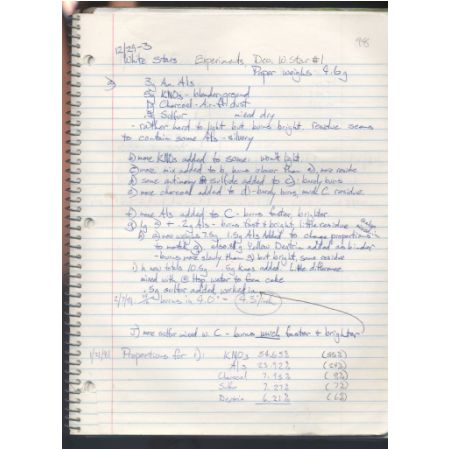 98
12/29-3
White Stars Experiments Dec. 10 Star #1
Paper weighs 4.6g
a) 3g Am. Als
5g KNO3 - blender ground
Charcoal - Air-fl dust
Sulfur mixed dry
- rather hard to light but burns bright. residue seems
to contain some Als - silvery
b) more KNO3 added to some: won't light.
c) more mix added to b, burns slower than a), more residue
d) some antimony sulfide added to c): barely burns
e) more charcoal added to d) - barely burns, much C residue
f) more Als added to C - burns faster, brighter
g) 1g + .2g Als - burns fast & bright, little residue
h) now weighs 7.5g. 1.5g Als added to change proportions
to match g) also Yellow Dextrin added as binder
- burns more slowly than g) but bright, some residue
i) h now totals 10.5g .5g KNO3 added: little difference
mixed with Hot water to form cake
.5g sulfur added, worked in
burns in 4.0" =
j) more sulfur mixed w. C - burns much faster & brighter
Proportions for i): KNO3 54.65% (55%)
Als 23.92% (24%)
Charcoal (8%)
Sulfur 7.27% (7%)
Dextrin 6.21% (6%)